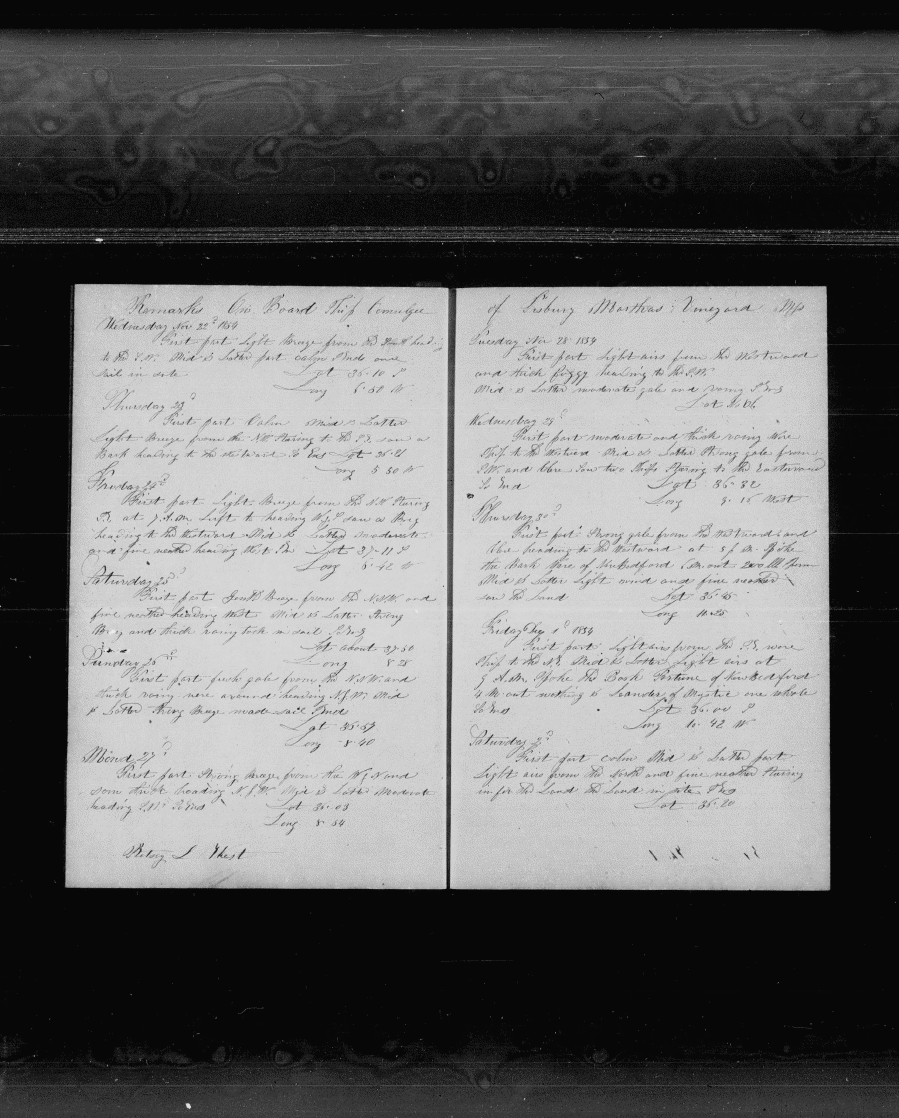 Remarks On Board Ship Ocmulgee
Wednesday Nov 22d 1854
First part Light Breeze from the South heading
to the S.W. Mid & Latter part calm Ends once
Sail in site Lat 36-10
Long 6-50 W
Thursday 23d
First part Calm Mid & Latter
Light Breeze from the NW Staring to the S.E. saw a
Bark heading to the Westward So Ends Lat 36-21
Long 5 50 W
First part Light Breeze from the N.W Staring
S.E. at 7 A.M. Luft to heading W.S. saw a Brig
heading to the Westward Mid & Latter moderate
and fine weather heading Lat 37-11 S
Long 6-42 W
Saturday 25
First part Breeze from the N.N.W. and
fine weather heading West Mid & Latter Strong
Breeze and thick rainy took in sail So Ends
Lat about 37-50
Long 8 28
Sunday 26
First part fresh gale from the N.N.W. and
thick rainy wore around heading Mid
& Latter strong Breeze made sail Ends
Lat 36-57
Long 8-40
Mond 27
First part Strong Breeze from the W.N. and
some thick heading Mid & Latter Moderate
heading So Ends Lat 36-03
Long 8-54
of Tisbury Marthas Vineyard Mass
Tuesday Nov 28 1854
First part Light airs from the Westward
and thick foggy heading to the S.W.
Mid & Latter moderate gale and rainy So Ends
Lat
Wednesday 29
First part modrate and thick rainy wore
Ship to the Mid & Latter Strong gale from
S.W. and Saw two Ships Staring to the Eastward
So End Lat 36-32
Long 9-15 West
Thursday 30
First part Strong gale from the Westward and
heading to the Westward at 5 P.M. Spoke
the Bark of New Bedford M. out 200 bbl
Mid & Latter Light wind and fine weather
saw the Land Lat 35-45
Long 10-25
Friday Dec 1st 1854
First part Light airs from the S.E. wore
Ship to the N.E. Mid & Latter Light airs at
9 A.M. Spoke the Bark Fortune of New Bedford
4 M out nothing & Leander of Mystic one whale
So Ends Lat 36-00 S
Long 10-42 W
Saturday 2d
First part calm Mid & Latter part
Light airs from the North and fine weather Staring
in for the Land the Land in site So Ends
Lat 36-20